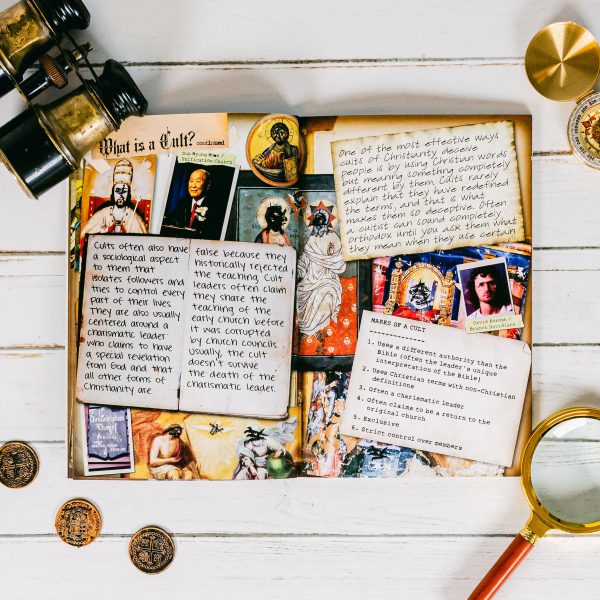 What is a Cult? continued
Sun Myung Moon /
Unification Church
Cults often also have
a sociological aspect
to them that
isolates followers and
tries to control every
part of their lives.
They are also usually
centered around a
charismatic leader
who claims to have
a special revelation
from God and that
all other forms of
Christianity are
false because they
historically rejected
the teaching. Cult
leaders often claim
they share the
teaching of the
early church before
it was corrupted
by church councils.
Usually, the cult
doesn't survive
the death of the
charismatic leader.
One of the most effective ways
cults of Christianity deceive
people is by using Christian words
but meaning something completely
different by them. Cults rarely
explain that they have redefined
the terms, and that is what
makes them so deceptive. Often
a cultist can sound completely
orthodox until you ask them what
they mean when they use certain
David Koresh /
Branch Davidians
MARKS OF A CULT
1. Uses a different authority than the
Bible (often the leader's unique
interpretation of the Bible)
2. Uses Christian terms with non-Christian
definitions
3. Often a charismatic leader
4. Often claims to be a return to the
original church
5. Exclusive
6. Strict control over members